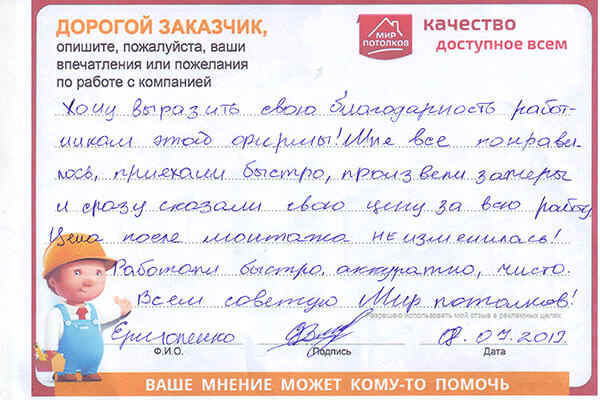 ДОРОГОЙ ЗАКАЗЧИК,
опишите, пожалуйста, ваши
впечатления или пожелания
по работе с компанией
МИР
ПОТОЛКОВ
качество
доступное всем
Хочу выразить свою благодарность работ-
никам этой фирмы! Мне все понрави-
лось, приехали быстро, произвели замеры
и сразу сказали свою цену за всю работу.
Цена после монтажа не изменилась!
Работали быстро, аккуратно, чисто.
Всем советую Мир потолков!
Разрешаю использовать мой отзыв в рекламных целях
Ф.И.О.
Подпись
Дата
ВАШЕ МНЕНИЕ МОЖЕТ КОМУ-ТО ПОМОЧЬ